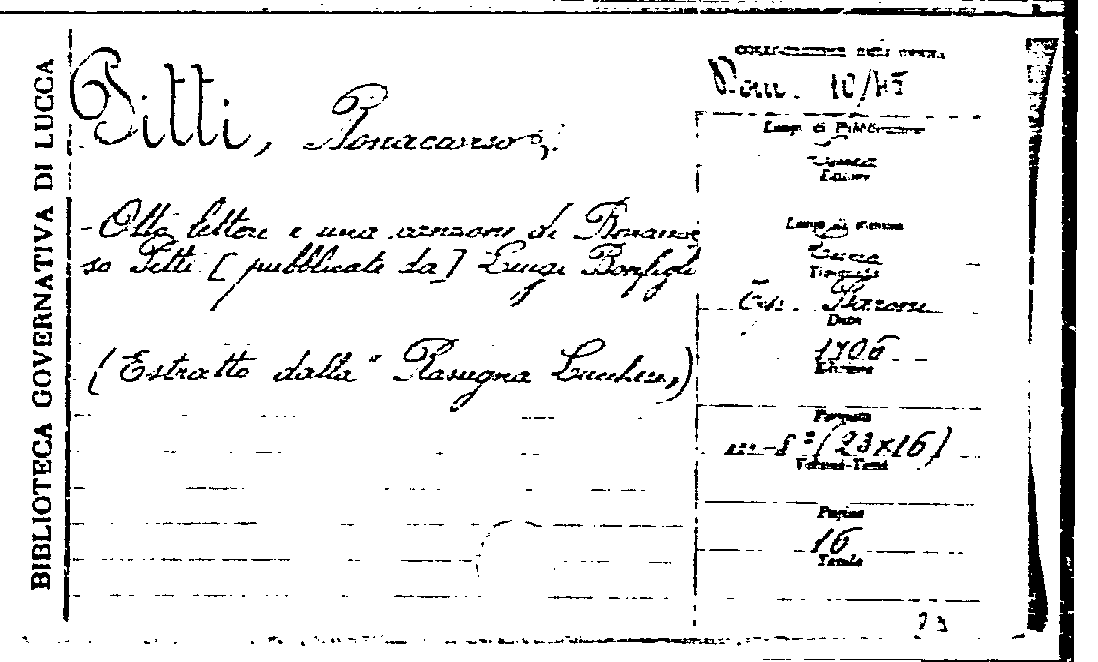 BIBLIOTECA GOVERNATIVA DI LUCCA
Pitti, Bonaccorso
- Otto lettere e una canzone di Bonaccor
so Pitti [pubblicate da] Luigi Bonfigli
(Estratto dalla "Rassegna Lucchese")
COLLOCAZIONE DELL'OPERA
10/45
Luogo di Pubblicazione
Editore
Luogo di stampa
Lucca
Tipografia
Tip. Marconi
Data
1906
Edizione
Formato
in-8° (23x16)
Volumi-Tomi
Pagine
16
Tavole
23